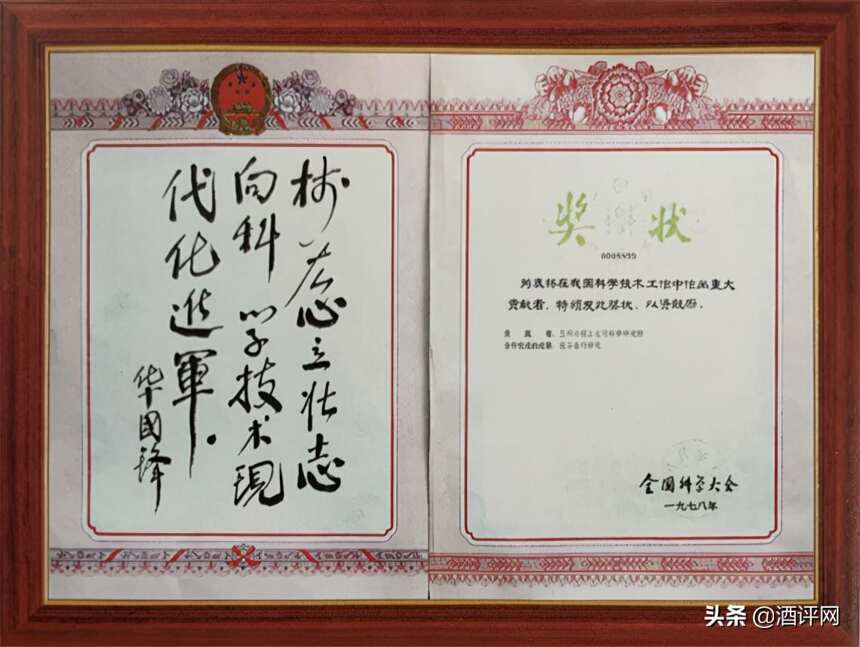 树雄心立壮志
向科学技术現
代化進軍。
华國锋
奖状
为表扬在我国科学技术工作中作出重大
贡献者，特颁发此奖状，以资鼓励。
合作完成的成果：
全国科学大会
一九七八年
头条 @酒评网